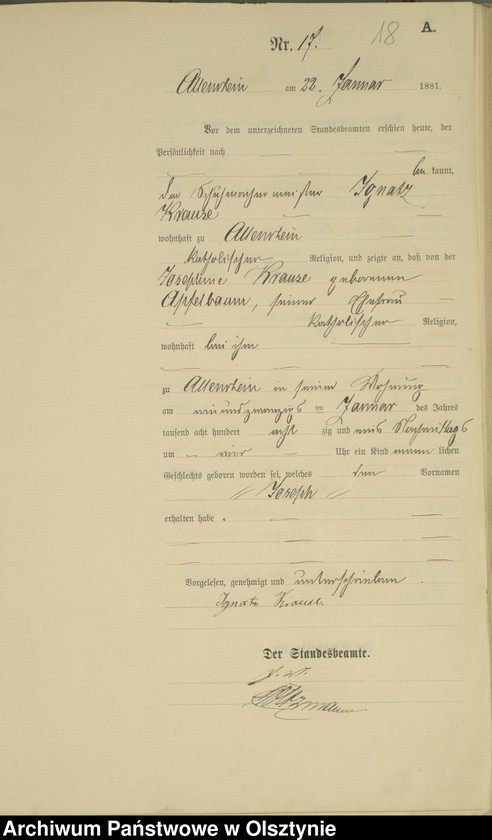 18
A.
Nr. 17.
Allenstein am 22. Januar 1881.
Vor dem unterzeichneten Standesbeamten erschien heute, der
Persönlichkeit nach
be kannt,
der Schuhmachermeister Ignatz
Krause
wohnhaft zu Allenstein
katholischer Religion, und zeigte an, daß von der
Josephine Krause geborenen
Apfelbaum, seiner Ehefrau
katholischer Religion,
wohnhaft bei ihm
zu Allenstein in seiner Wohnung
am ten Januar des Jahres
tausend acht hundert acht zig und eins Nachmittags
um vier Uhr ein Kind männ lichen
Geschlechts geboren worden sei, welches den Vornamen
" Joseph "
erhalten habe.
Vorgelesen, genehmigt und unterschrieben.
Ignatz Krause
Der Standesbeamte.
Archiwum Państwowe w Olsztynie